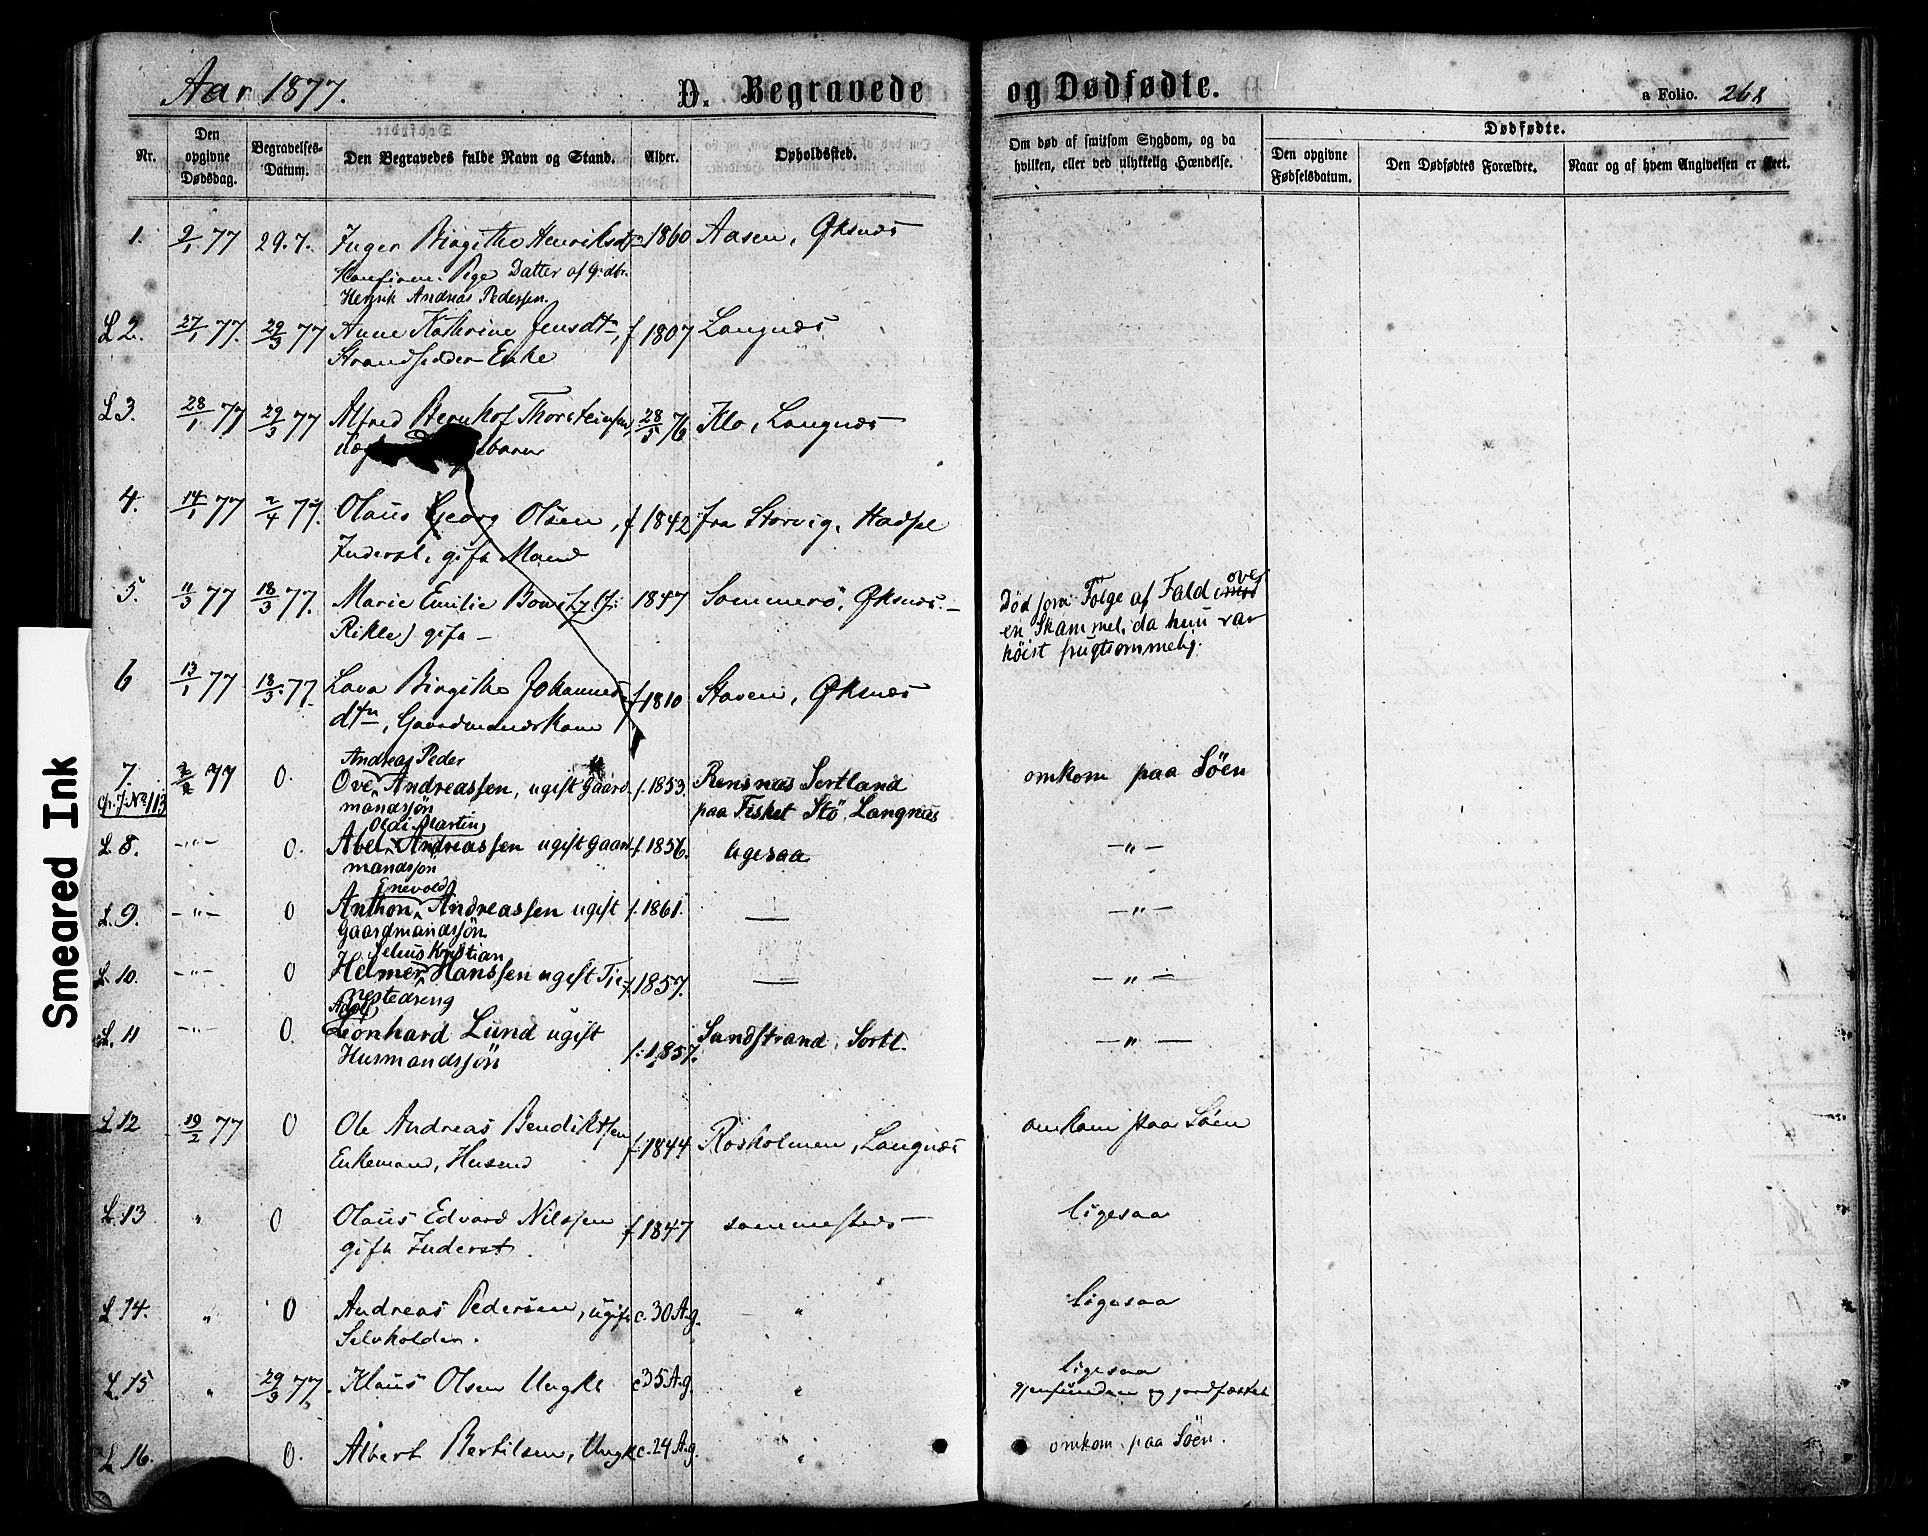 Aar 1877.
D. Begravede og Dødfødte.
a Folio. 268
Nr.
Den opgivne Dødsdag.
Begravelses-Datum.
Den Begravedes fulde Navn og Stand.
Alder.
Opholdssted.
Om død af smitsom Sygdom, og da
hvilken, eller ved ulykkelig Hændelse.
Dødfødte.
Den opgivne Fødselsdatum.
Den Dødfødtes Forældre.
Naar og af hvem Angivelsen er skeet.
1. 9/1 77 29.7. Inger Birgithe Henriksdtr 1860 Aasen, Øksnæs
Konfirm. Pige Datter af Grdbr.
Henrik Andreas Pedersen.
L 2. 27/1 77. 29/3 77 Anne Kathrine Jensdtr, f 1807 Langnæs
Strandsidder Enke
L 3. 28/1 77 29/3 77 Alfred Bernhof Thorsteinsen, 28/5 76 Klo, Langnæs
4. 14/1 77 2/4 77. Olaus Georg Olsen, f 1842 fra Storvig, Hadsel
Inderst, gift Mand
5. 11/3 77 18/3 77. Marie Emilie 1847 Sommerø, Øksnæs.
Rikle) gift
Død som Følge af Fald over
en Skammel, da hun var
høist frugtsommelig.
6 13/1 77 18/3 77. Lava Birgithe Johannes- f 1810 Staven, Øksnæs
dtr, Gaardmandskone
Andreas Peder
7. 2/2 77 0. Ove Andreassen, ugift Gaard- f. 1853. Rensnæs Sortland omkom paa Søen
cfr. J. No 113 mandsøn paa Fisket Stö, Langnæs
Oldi Martin
L 8. -"- 0. Abel Andreassen ugift Gaard- f. 1856. ligesaa -"-
mandsjøn
Enevold
L. 9. -"- 0 Anthon Andreassen ugift f. 1861. -"-
Gaardmandsjøn
Jelius Kristian
L. 10. -"- 0 Helmer Hanssen ugift Tje- f. 1857. -"-
nestedreng
Adolf
L. 11 -"- 0. Leonhard Lund ugift f. 1857. Sandstrand, Sortl. -"-
Husmandssjön
L. 12 19/2 77 0 Ole Andreas Bendiktsen f. 1844 Rosholmen, Langnæs omkom paa Søen
Enkemand, Husmd
L. 13 " 0 Olaus Edvard Nilssen f 1847 sammesteds ligesaa
gift Inderst.
L. 14. " 0 Andreas Pedersen, ugift c. 30 A. g. " ligesaa
Selvholden.
L. 15 " 29/3 77. Klaus Olsen Ungkl c 35 A. g. " ligesaa
gjenfunden og jordfæstet
L 16. 0. Albert Bertilsen, Ungk c. 24 A. g. " omkom paa Søen.
Smeared Ink